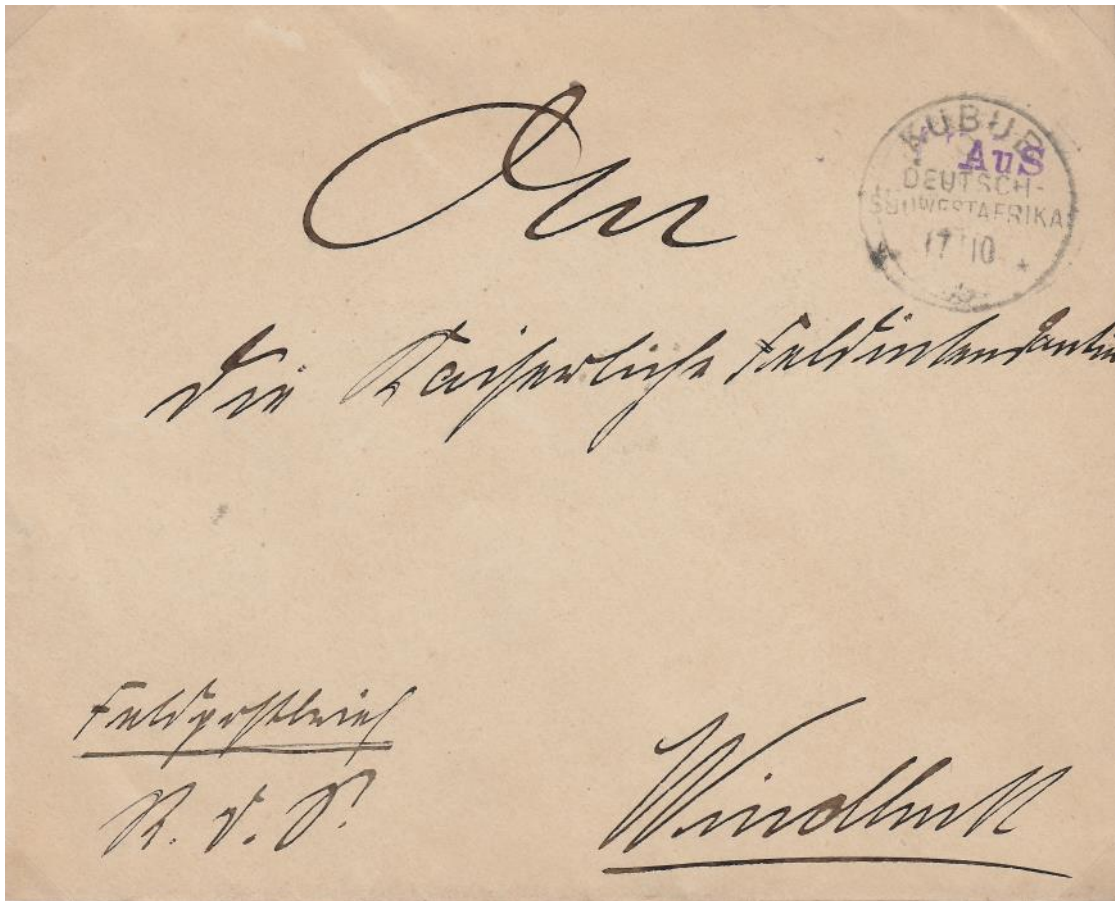 KUBUB
AuS
DEUTSCH-
SÜDWESTAFRIKA
17 10
An
die Kaiserliche Feldintendantu
Feldpostbrief
Windhuk